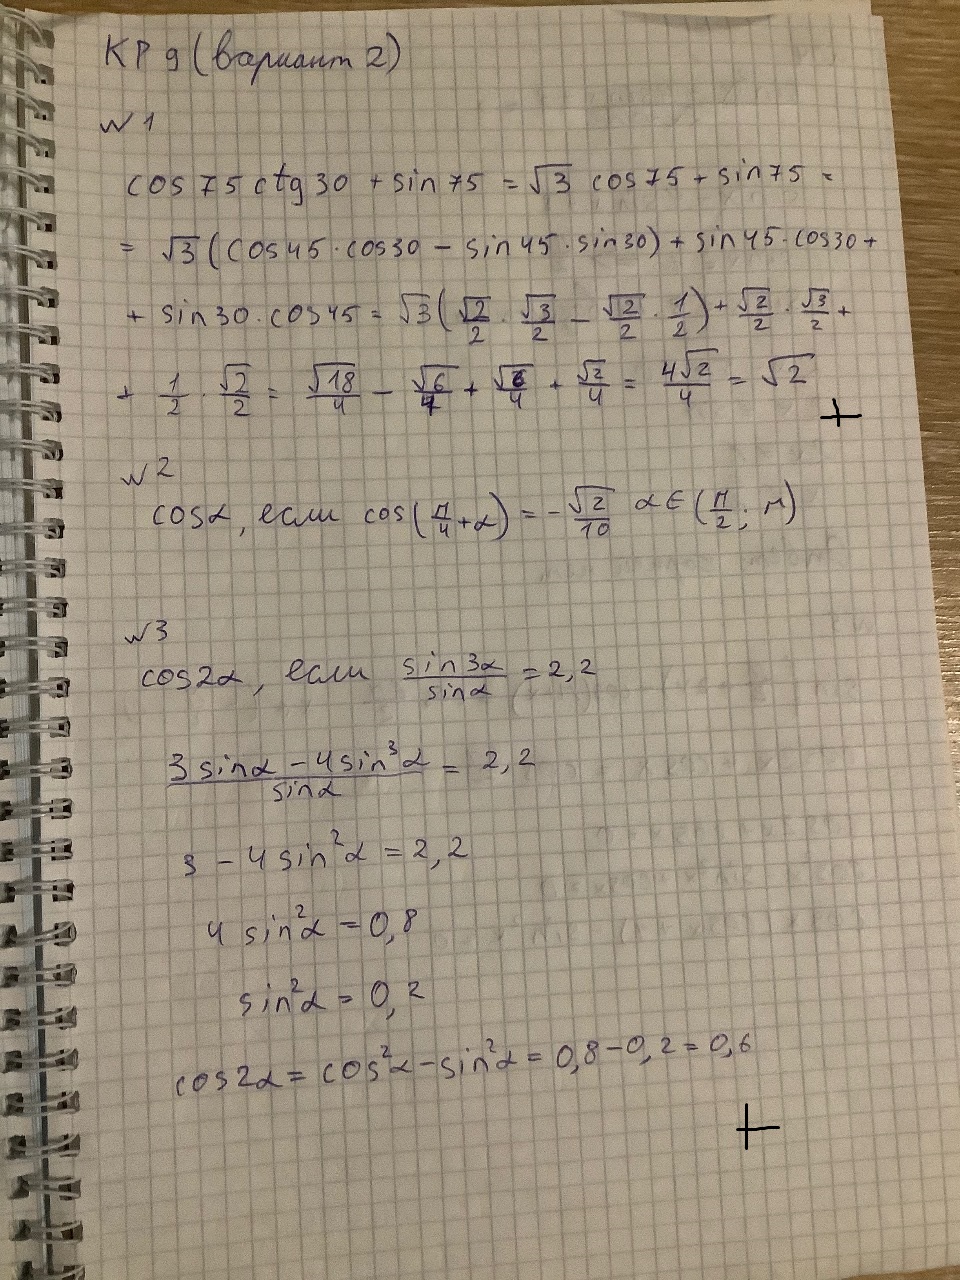 КР 9 (вариант 2)
№ 1
cos 75 ctg 30 + sin 75 = √3 cos 75 + sin 75 =
= √3 (cos 45 · cos 30 − sin 45 · sin 30) + sin 45 · cos 30 +
+ sin 30 · cos 45 = √3 (√2/2 · √3/2 − √2/2 · 1/2) + √2/2 · √3/2 +
+ 1/2 · √2/2 = √18/4 − √6/4 + √6/4 + √2/4 = 4√2/4 = √2
+
№ 2
cos α, если cos (π/4 + α) = − √2/10 α ∈ (π/2; π)
№ 3
cos 2α, если sin 3α / sin α = 2,2
3 sin α − 4 sin³ α / sin α = 2,2
3 − 4 sin² α = 2,2
4 sin² α = 0,8
sin² α = 0,2
cos 2α = cos² α − sin² α = 0,8 − 0,2 = 0,6
+